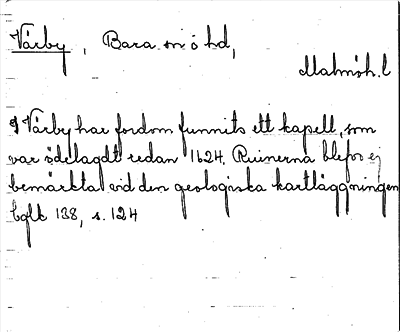 Vårby, Bara sn o hd,
Malmöh. l
I Vårby har fordom funnits ett kapell, som
var ödelagdt redan 1624. Ruinerna blefvo ej
bemärkta vid den geologiska kartläggningen
bglk 138, s. 124